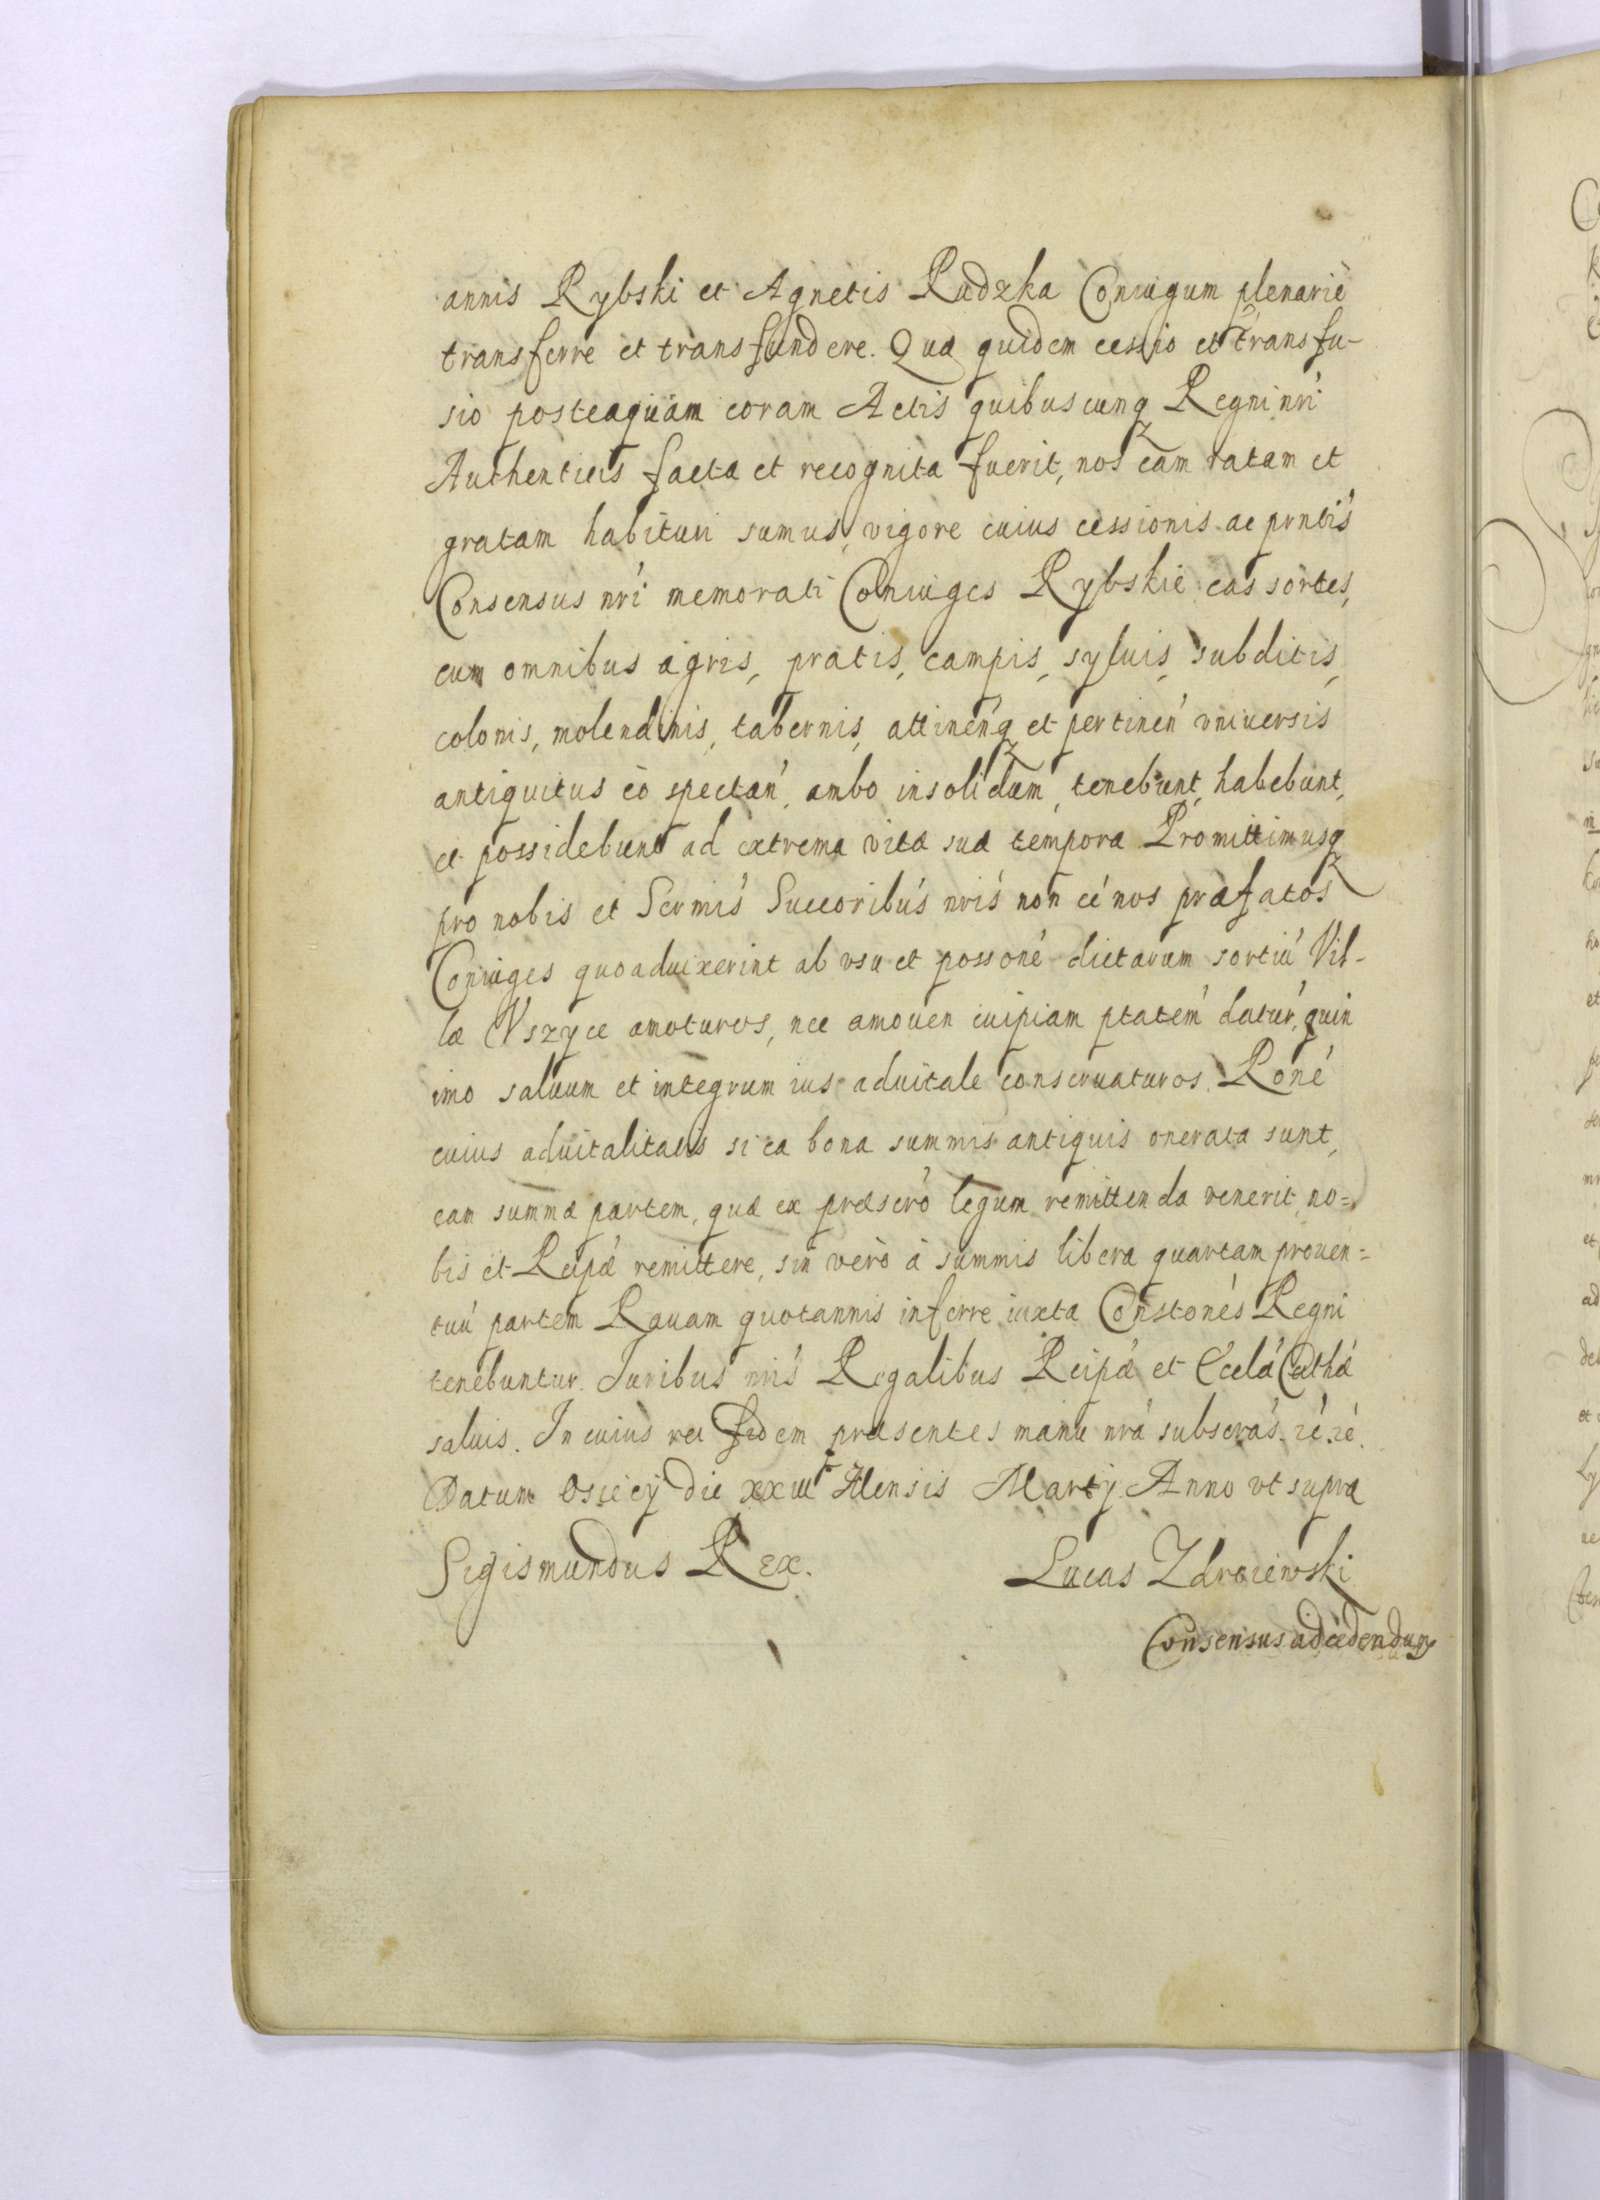 annis Rybski et Agnetis Rudzka Coniugum plenariè
transferre et transfundere. Quæ quidem cessio et transfu-
sio posteaquam coram Actis quibuscunq Regni nri
Authenticis facta et recognita fuerit, nos eam ratam et
gratam habituri sumus, vigore cuius cessionis ac pntis
Consensus nri memorati Coniuges Rybskie eas sortes,
cum omnibus agris, pratis, campis, syluis, subditis,
colonis, molendinis, tabernis, attinenq et pertinen vniuersis
antiquitus eò spectan, ambo insolidum, tenebunt, habebunt,
et possidebunt ad extrema vitæ suæ tempora Promittimusq
pro nobis et Sermis Succoribus nris non eé nos præfatos
Coniuges quoaduixerint ab vsu et possone dictarum sortiu Vil-
læ Vszyce amoturos, nec amouen cuipiam ptatem datur, quin
imo saluum et integrum ius aduitale conseruaturos. Rone
cuius aduitalitatis si ea bona summis antiquis onerata sunt,
eam summæ partem, quæ ex præscro legum remittenda venerit, no=
bis et Reipæ remittere, sin verò à summis libera quartam prouen=
tuu partem Rauam quotannis inferre iuxta Constones Regni
tenebuntur. Juribus nris Regalibus Reipæ et Ecclæ Cathæ
saluis. In cuius rei fidem præsentes manu nra subscras. ré. ré.
Datum Osiecÿ die xxiii Mensis Martÿ Anno vt supra
Sigismundus Rex. Lucas Zdroiewski
Consensus ad cedendum